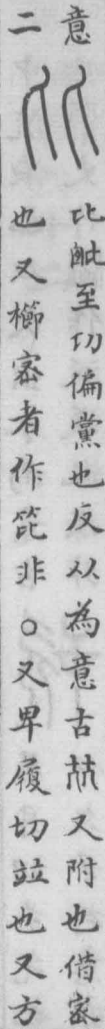 意
比毗至切偏黨也反从為意古𣬅又附也借宻
二
也又櫛宻者作笓非○又卑履切竝也又方